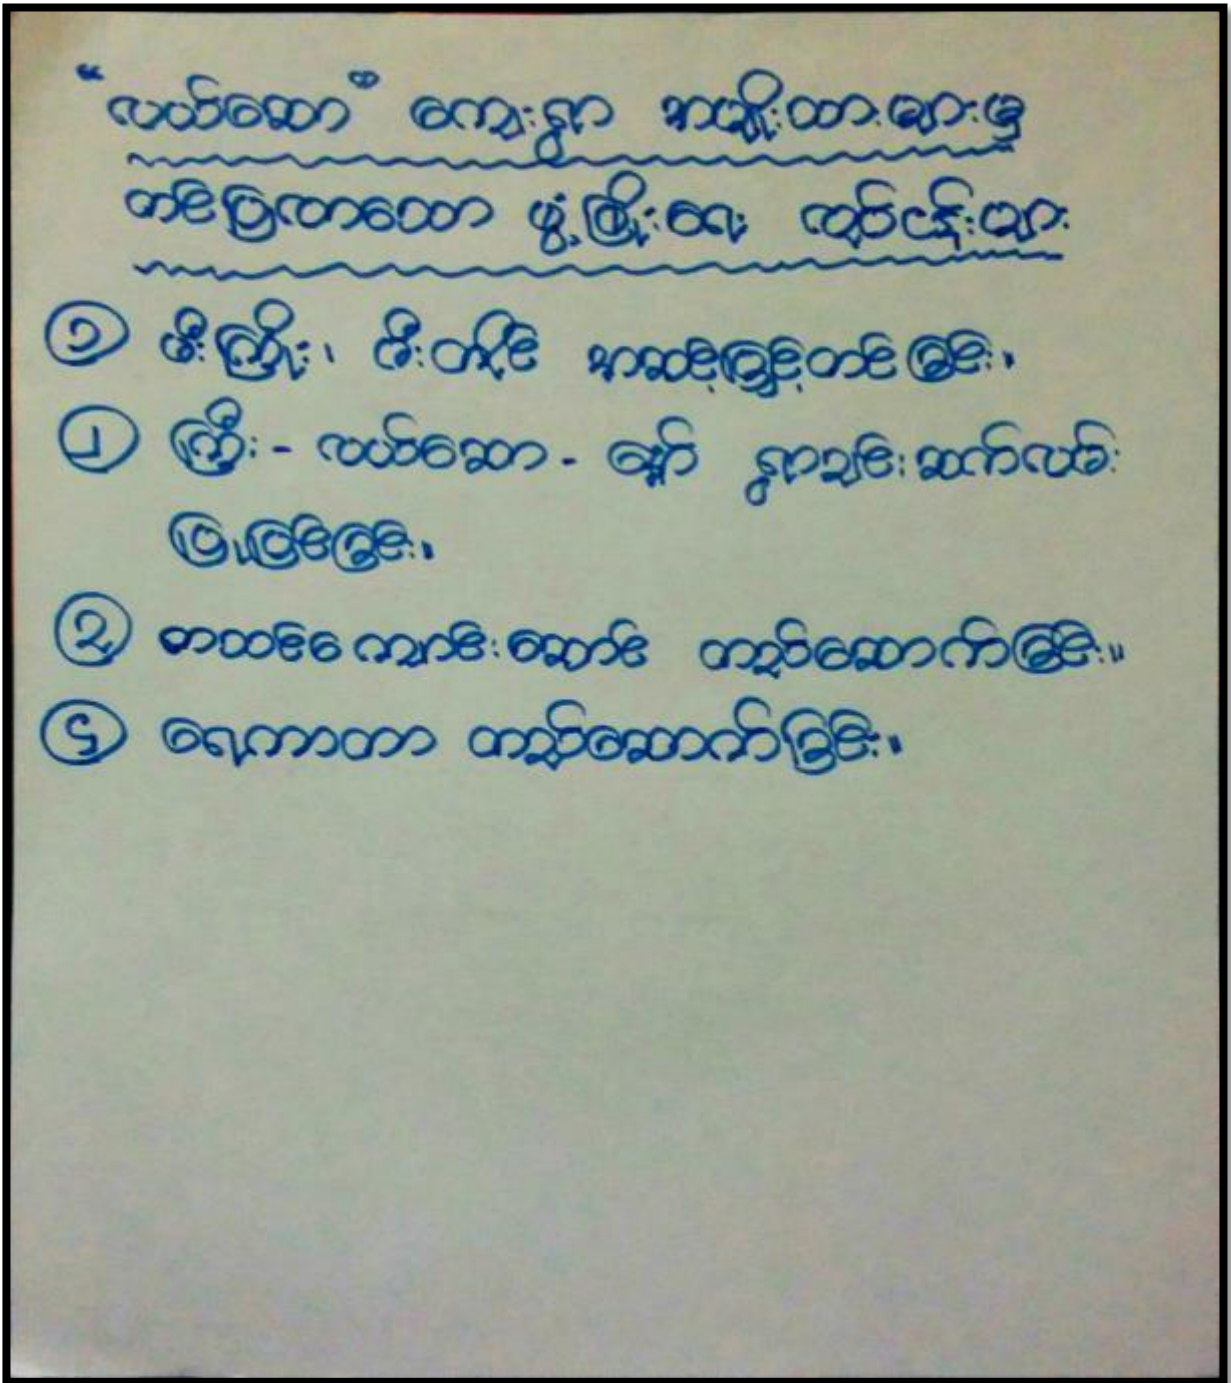 “လယ်ဆော” ကျေးရွာ အမျိုးသားများမှ
တင်ပြလာသော ဖွံ့ဖြိုးရေး လုပ်ငန်းများ
၁ မီးကြိုး၊ မီးတိုင် အဆင့်မြှင့်တင်ခြင်း။
၂ ကြီး - လယ်ဆော - ရွာချင်းဆက်လမ်း
ပြုပြင်ခြင်း။
၃ စာသင်ကျောင်းဆောင် တည်ဆောက်ခြင်း။
၄ ရေကာတာ တည်ဆောက်ခြင်း။